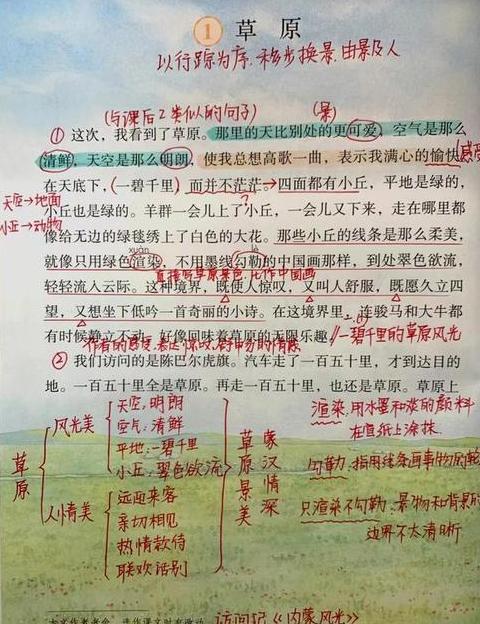 1 草原
以行踪为序,移步换景,由景及人
(与课后2类似的句子)
(景)
① 这次,我看到了草原。那里的天比别处的更可爱,空气是那么
清鲜,天空是那么明朗,使我总想高歌一曲,表示我满心的愉快。
在天底下,一碧千里,而并不茫茫。四面都有小丘,平地是绿的,
天空→地面
小丘也是绿的。羊群一会儿上了小丘,一会儿又下来,走在哪里都
小丘→动物
像给无边的绿毯绣上了白色的大花。那些小丘的线条是那么柔美,
xuàn
lè
就像只用绿色渲染,不用墨线勾勒的中国画那样,到处翠色欲流,
直接写草原景色,比作中国画
轻轻流入云际。这种境界,既使人惊叹,又叫人舒服,既愿久立四
望,又想坐下低吟一首奇丽的小诗。在这境界里,连骏马和大牛都
有时候静立不动,好像回味着草原的无限乐趣。
一碧千里的草原风光
② 我们访问的是陈巴尔虎旗。汽车走了一百五十里,才到达目的
地。一百五十里全是草原。再走一百五十里,也还是草原。草原上
草原
风光美
天空:明朗
空气:清鲜
平地:一碧千里
小丘:翠色欲流
人情美
远迎来客
亲切相见
热情款待
联欢话别
草原景美
蒙汉情深
渲染:用水墨和淡的颜料
在宣纸上涂抹.
勾勒:指用线条画事物的轮
只渲染不勾勒:景物和背景的
边界不太清晰
本文作者老舍,选作课文时有改动
访问记《内蒙风光》